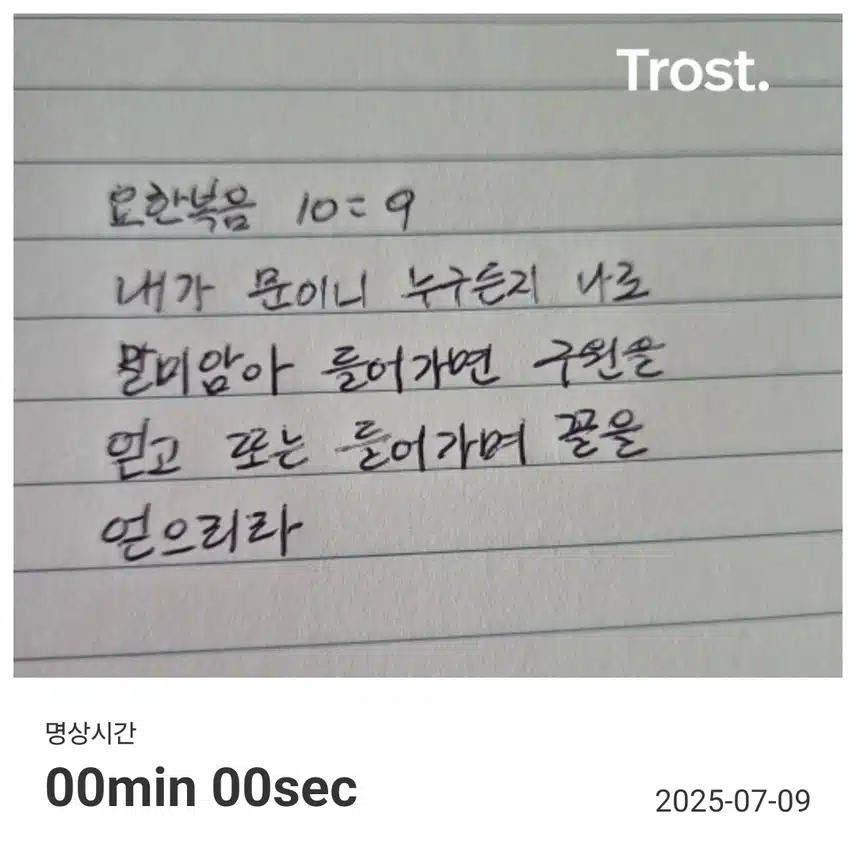 Trost.
요한복음 10 = 9
내가 문이니 누구든지 나로
말미암아 들어가면 구원을
얻고 또는 들어가며 꼴을
얻으리라
명상시간
00min 00sec
2025-07-09